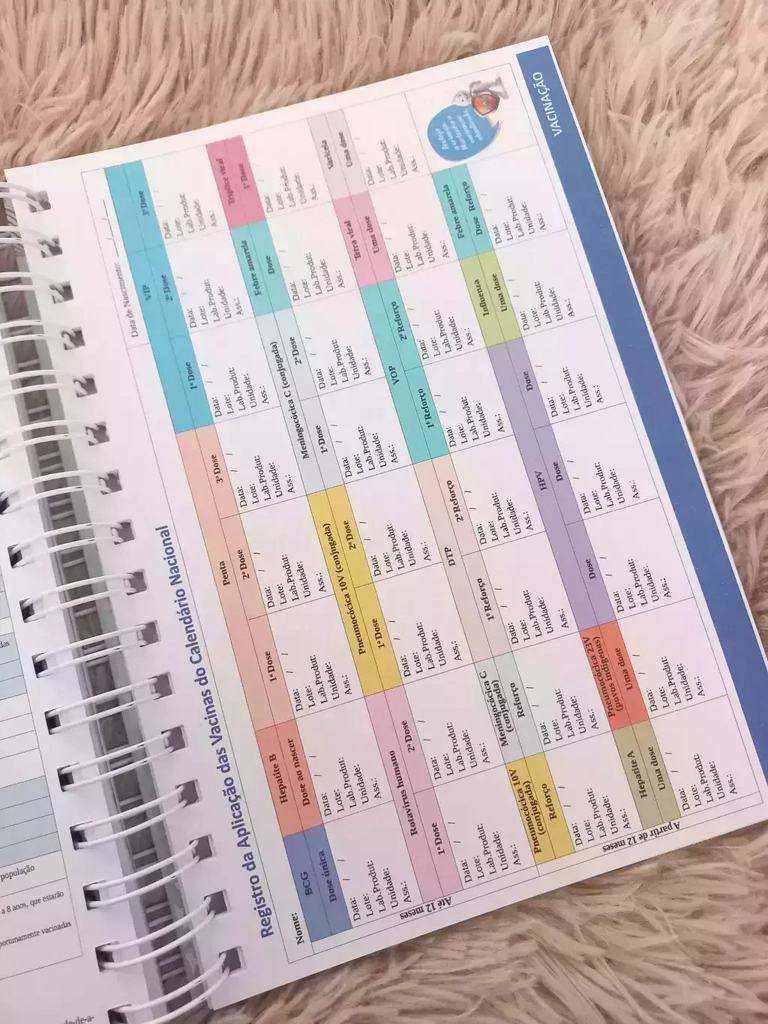 Registro da Aplicação das Vacinas do Calendário Nacional
Nome:
Data de Nascimento: / /
Até 12 meses
BCG
Dose única
Hepatite B
Dose ao nascer
Penta
1ª Dose 2ª Dose 3ª Dose
VIP
1ª Dose 2ª Dose 3ª Dose
Data: / / Data: / / Data: / / Data: / / Data: / / Data: / / Data: / / Data: / /
Lote: Lote: Lote: Lote: Lote: Lote: Lote: Lote:
Lab.Produt: Lab.Produt: Lab.Produt: Lab.Produt: Lab.Produt: Lab.Produt: Lab.Produt: Lab.Produt:
Unidade: Unidade: Unidade: Unidade: Unidade: Unidade: Unidade: Unidade:
Ass.: Ass.: Ass.: Ass.: Ass.: Ass.: Ass.: Ass.:
Rotavírus humano
1ª Dose 2ª Dose
Pneumocócica 10V (conjugada)
1ª Dose 2ª Dose
Meningocócica C (conjugada)
1ª Dose 2ª Dose
Febre amarela
Dose
Tríplice viral
1ª Dose
Data: / / Data: / / Data: / / Data: / / Data: / / Data: / / Data: / / Data: / /
Lote: Lote: Lote: Lote: Lote: Lote: Lote: Lote:
Lab.Produt: Lab.Produt: Lab.Produt: Lab.Produt: Lab.Produt: Lab.Produt: Lab.Produt: Lab.Produt:
Unidade: Unidade: Unidade: Unidade: Unidade: Unidade: Unidade: Unidade:
Ass.: Ass.: Ass.: Ass.: Ass.: Ass.: Ass.: Ass.:
A partir de 12 meses
Pneumocócica 10V
(conjugada)
Reforço
Meningocócica C
(conjugada)
Reforço
DTP
1º Reforço 2º Reforço
VOP
1º Reforço 2º Reforço
Tetra viral
Uma dose
Varicela
Uma dose
Data: / / Data: / / Data: / / Data: / / Data: / / Data: / / Data: / / Data: / /
Lote: Lote: Lote: Lote: Lote: Lote: Lote: Lote:
Lab.Produt: Lab.Produt: Lab.Produt: Lab.Produt: Lab.Produt: Lab.Produt: Lab.Produt: Lab.Produt:
Unidade: Unidade: Unidade: Unidade: Unidade: Unidade: Unidade: Unidade:
Ass.: Ass.: Ass.: Ass.: Ass.: Ass.: Ass.: Ass.:
Hepatite A
Uma dose
Pneumocócica 23V
(povos indígenas)
Uma dose
HPV
Dose Dose Dose
Influenza
Uma dose
Febre amarela
Dose Reforço
Data: / / Data: / / Data: / / Data: / / Data: / / Data: / / Data: / /
Lote: Lote: Lote: Lote: Lote: Lote: Lote:
Lab.Produt: Lab.Produt: Lab.Produt: Lab.Produt: Lab.Produt: Lab.Produt: Lab.Produt:
Unidade: Unidade: Unidade: Unidade: Unidade: Unidade: Unidade:
Ass.: Ass.: Ass.: Ass.: Ass.: Ass.: Ass.:
VACINAÇÃO
população
a 8 anos, que estarão
portunamente vacinadas